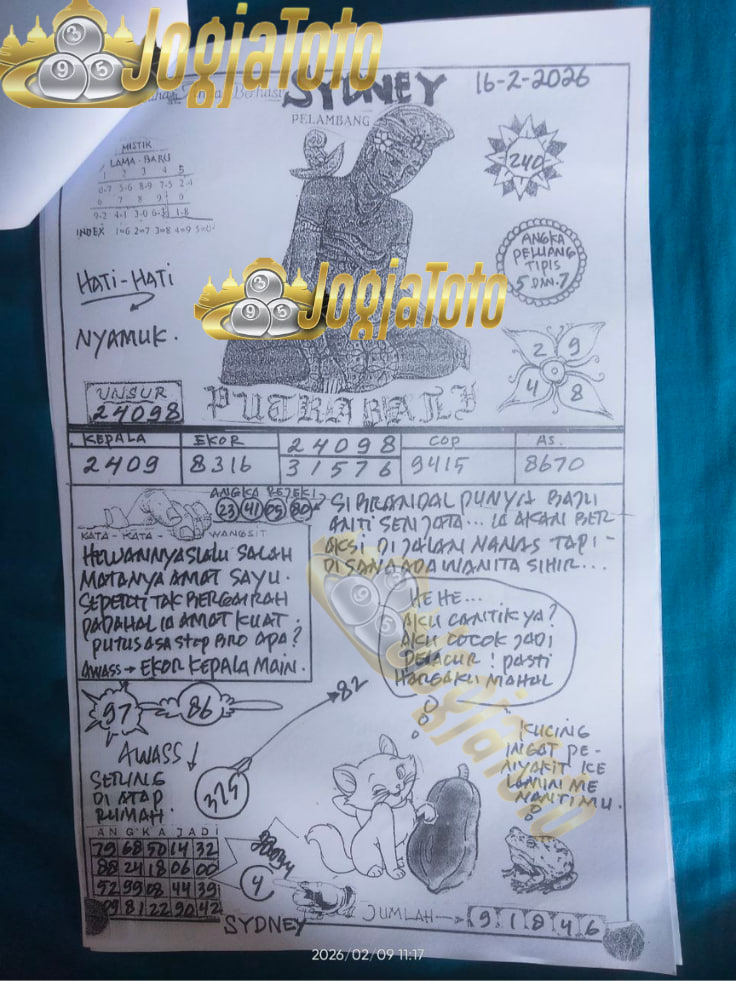 JogjaToto
SYDNEY
16-2-2026
PELAMBANG
MISTIK
LAMA - BARU
1 2 3 4 5
0-7 5-6 8-9 7-5 2-4
6 7 8 9 0
9-2 4-1 3-0 6-3 1-8
INDEX 1=6 2=7 3=8 4=9 5=0
240
ANGKA
PELUANG
TIPIS
5 DAN 7
HATI-HATI
NYAMUK.
JogjaToto
2 9
4 8
UNSUR
24098
PUTRA BALI
KEPALA EKOR 24098 COP AS.
2409 8316 31576 9415 8670
ANGKA REJEKI
23 41 05 80
KATA - KATA - WANGSIT
HEWANNYA SLALU SALAH
MATANYA AMAT SAYU.
SEPERTI TAK BERGAIRAH
PADAHAL IA AMAT KUAT.
PUTUS ASA STOP BRO APA?
AWASS → EKOR KEPALA MAIN.
SI BRANDAL PUNYA BAJU
ANTI SENJATA... IA AKAN BER-
AKSI DI JALAN NANAS TAPI -
DISANA ADA WANITA SIHIR...
HE HE...
AKU CANTIK YA?
AKU COCOK JADI
PELACUR! PASTI
HARGAKU MAHAL
JogjaToto
97 86
82
AWASS
SERING
DI ATAP
RUMAH.
325
KUCING
INGAT PE-
NYAKIT KE
LAMIN ME
NANTIMU.
ANGKA JADI
79 68 50 14 32
88 24 18 06 00
52 99 08 44 39
09 81 22 90 42
4
SYDNEY
JUMLAH → 9 1 8 4 6
2026/02/09 11:17